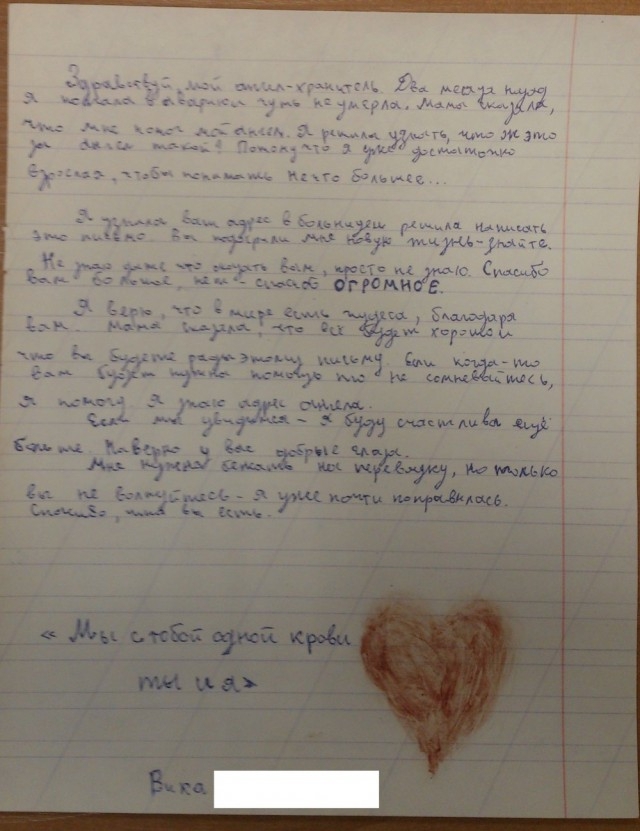 Здравствуй, мой ангел-хранитель. Два месяца назад
я попала в аварию и чуть не умерла. Мама сказала,
что мне помог мой ангел. Я решила узнать, что ж это
за ангел такой? Потому что я уже достаточно
взрослая, чтобы понимать нечто большее...
Я узнала ваш адрес в больнице и решила написать
это письмо. Вы подарили мне новую жизнь - знайте.
Не знаю даже что сказать вам, просто не знаю. Спасибо
вам большое, нет - спасибо ОГРОМНОЕ.
Я верю, что в мире есть чудеса, благодаря
вам. Мама сказала, что всё будет хорошо и
что вы будете рады этому письму. Если когда-то
вам будет нужна помощь то не сомневайтесь,
я помогу. Я знаю адрес ангела.
Если мы увидимся - я буду счастлива ещё
больше. Наверно у вас добрые глаза.
Мне нужно бежать на перевязку, но только
вы не волнуйтесь - я уже почти поправилась.
Спасибо, что вы есть.
« Мы с тобой одной крови
ты и я»
Вика